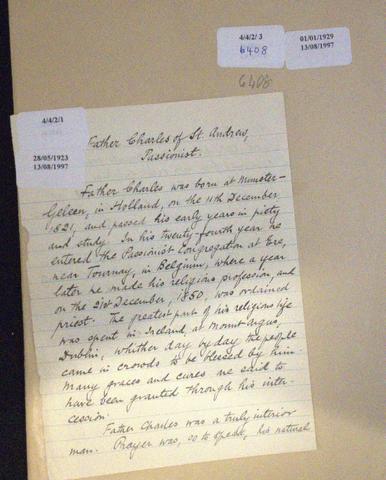 4/4/2/ 3
6408
01/01/1929
13/08/1997
6408
4/4/2/1
28/05/1923
13/08/1997
Father Charles of St. Andrew,
Passionist.
Father Charles was born at Munster-
Geleen, in Holland, on the 11th December
1821, and passed his early years in piety
and study. In his twenty-fourth year he
entered the Passionist Congregation at Ere,
near Tournay, in Belgium, where a year
later he made his religious profession, and
on the 21st December, 1850, was ordained
priest. The greatest part of his religious life
was spent in Ireland, at Mount Argus,
Dublin, whither day by day the people
came in crowds to be blessed by him.
Many graces and cures are said to
have been granted through his inter-
cession.
Father Charles was a truly interior
man. Prayer was, so to speak, his natural